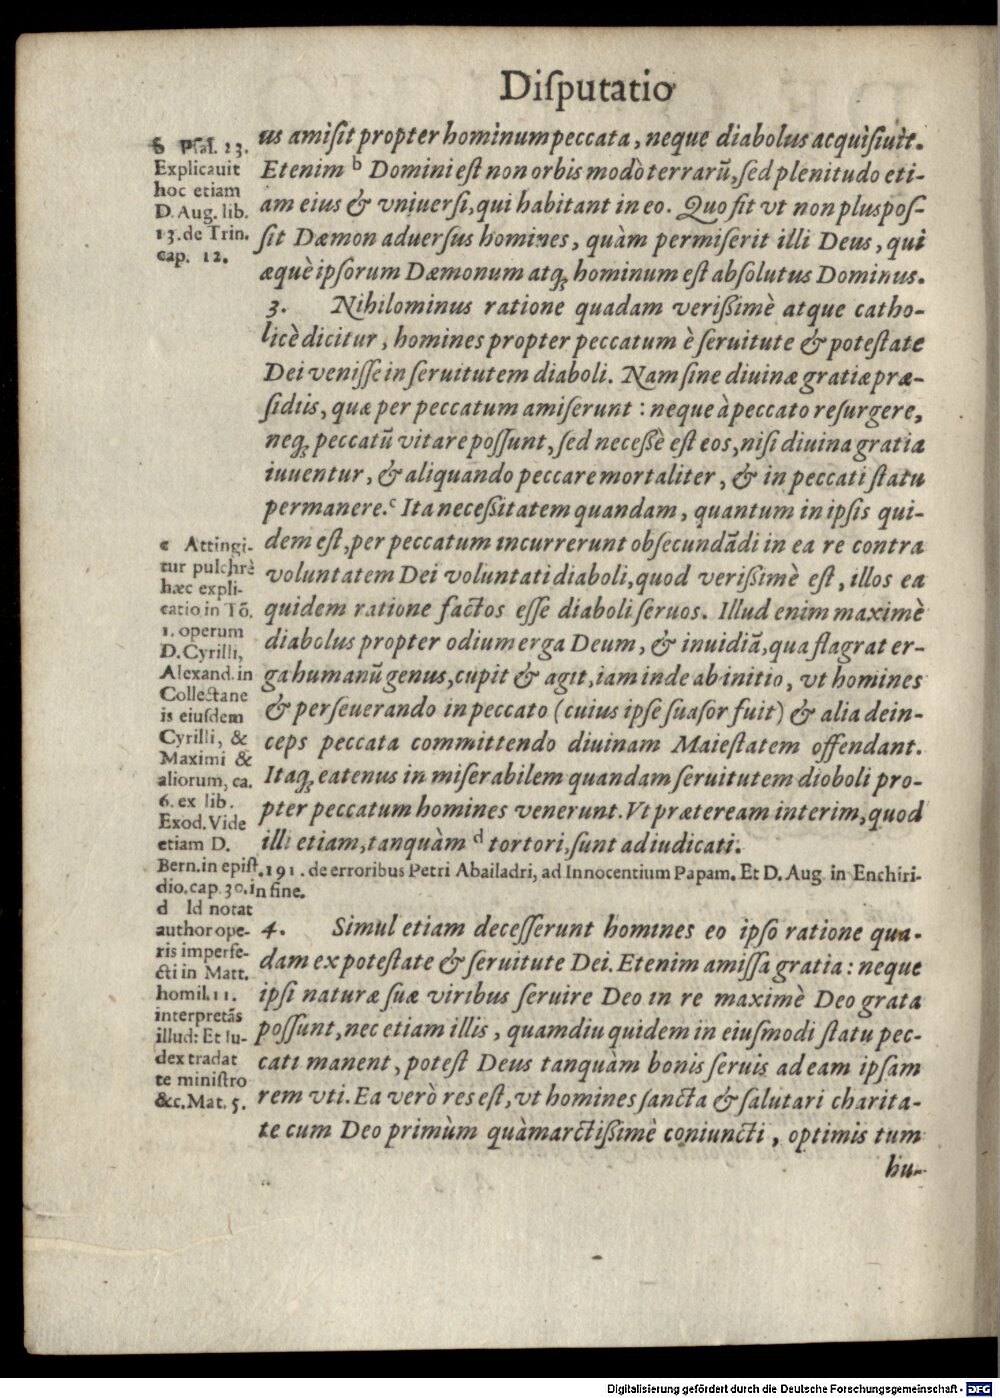 Diſputatio
us amiſit propter hominum peccata, neque diabolus acquiſiuit.
Etenim b Domini eſt non orbis modò terrarũ, ſed plenitudo eti-
am eius & vniuerſi, qui habitant in eo. Quo fit vt non plus poſ-
ſit Dæmon aduerſus homines, quàm permiſerit illi Deus, qui
æquè ipſorum Dæmonum atq; hominum eſt abſolutus Dominus.
b Pſal. 23.
Explicauit
hoc etiam
D. Aug. lib.
13. de Trin.
cap. 12.
3. Nihilominus ratione quadam veriſſimè atque catho-
licè dicitur, homines propter peccatum è ſeruitute & poteſtate
Dei veniſſe in ſeruitutem diaboli. Nam ſine diuinæ gratiæ præ-
ſidiis, quæ per peccatum amiſerunt : neque à peccato reſurgere,
neq; peccatũ vitare poſſunt, ſed neceſſè eſt eos, niſi diuina gratia
iuuentur, & aliquando peccare mortaliter, & in peccati ſtatu
permanere. c Ita neceſſitatem quandam, quantum in ipſis qui-
dem eſt, per peccatum incurrerunt obſecundãdi in ea re contra
voluntatem Dei voluntati diaboli, quod veriſſimè eſt, illos ea
quidem ratione factos eſſe diaboli ſeruos. Illud enim maximè
diabolus propter odium erga Deum, & inuidiã, qua flagrat er-
ga humanũ genus, cupit & agit, iam inde ab initio, vt homines
& perſeuerando in peccato (cuius ipſe ſuaſor fuit) & alia dein-
ceps peccata committendo diuinam Maieſtatem offendant.
Itaq; eatenus in miſerabilem quandam ſeruitutem dioboli pro-
pter peccatum homines venerunt. Vt præteream interim, quod
illi etiam, tanquàm d tortori, ſunt adiudicati.
c Attingi-
tur pulchrè
hæc expli-
catio in Tõ.
1. operum
D. Cyrilli,
Alexand. in
Collectane
is eiuſdem
Cyrilli, &
Maximi &
aliorum, ca.
6. ex lib.
Exod. Vide
etiam D.
Bern. in epiſt. 191. de erroribus Petri Abailadri, ad Innocentium Papam. Et D. Aug. in Enchiri-
dio. cap. 30. in fine.
d Id notat
author ope-
ris imperfe-
cti in Matt.
homil. 11.
interpretãs
illud: Et Iu-
dex tradat
te miniſtro
&c. Mat. 5.
4. Simul etiam deceſſerunt homines eo ipſo ratione qua-
dam ex poteſtate & ſeruitute Dei. Etenim amiſſa gratia : neque
ipſi naturæ ſuæ viribus ſeruire Deo in re maximè Deo grata
poſſunt, nec etiam illis, quamdiu quidem in eiuſmodi ſtatu pec-
cati manent, poteſt Deus tanquàm bonis ſeruis ad eam ipſam
rem vti. Ea verò res eſt, vt homines ſancta & ſalutari charita-
te cum Deo primùm quàm arctiſſimè coniuncti, optimis tum
hu-
Digitalisierung gefördert durch die Deutsche Forschungsgemeinschaft - DFG